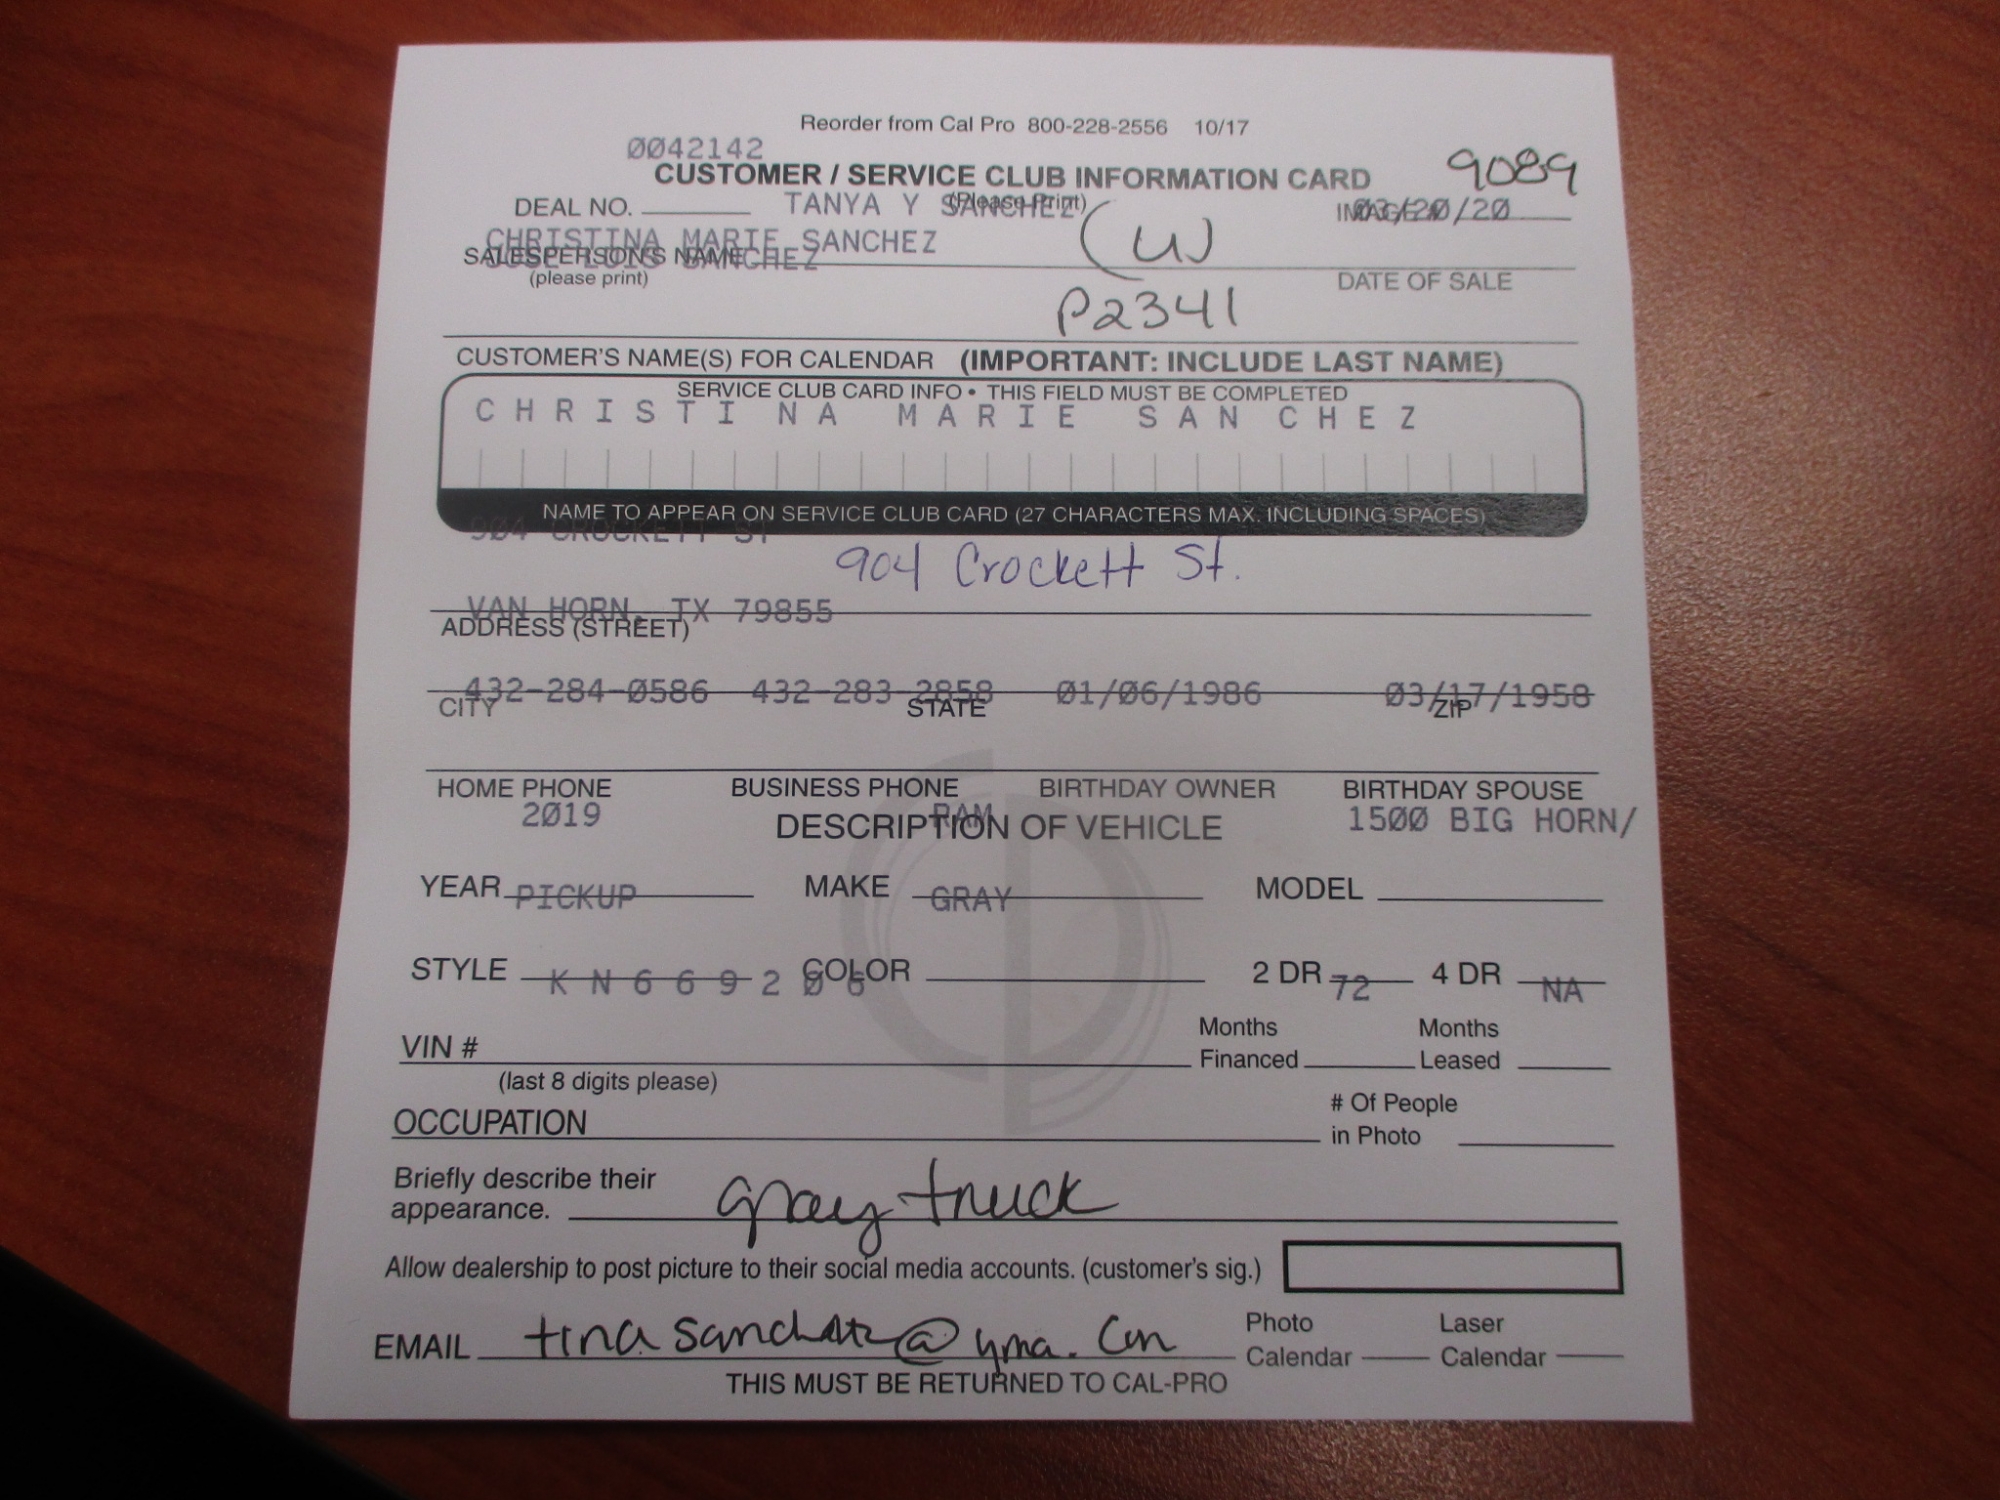 Reorder from Cal Pro 800-228-2556 10/17
0042142
CUSTOMER / SERVICE CLUB INFORMATION CARD 9089
DEAL NO. TANYA Y SANCHEZ (Please Print) IMAGE# 03/20/20
CHRISTINA MARIE SANCHEZ (W)
SALESPERSON'S NAME JOSE LUIS SANCHEZ
(please print) DATE OF SALE
P2341
CUSTOMER'S NAME(S) FOR CALENDAR (IMPORTANT: INCLUDE LAST NAME)
SERVICE CLUB CARD INFO • THIS FIELD MUST BE COMPLETED
CHRISTINA MARIE SANCHEZ
NAME TO APPEAR ON SERVICE CLUB CARD (27 CHARACTERS MAX. INCLUDING SPACES)
904 CROCKETT ST
904 Crockett St.
VAN HORN, TX 79855
ADDRESS (STREET)
432-284-0586 432-283-2858 01/06/1986 03/17/1958
CITY STATE ZIP
HOME PHONE BUSINESS PHONE BIRTHDAY OWNER BIRTHDAY SPOUSE
2019 RAM 1500 BIG HORN/
DESCRIPTION OF VEHICLE
YEAR PICKUP MAKE GRAY MODEL
STYLE KN669206 COLOR 2 DR 72 4 DR NA
VIN # Months Financed Months Leased
(last 8 digits please)
OCCUPATION # Of People in Photo
Briefly describe their
appearance. gray truck
Allow dealership to post picture to their social media accounts. (customer's sig.)
EMAIL Photo Calendar Laser Calendar
THIS MUST BE RETURNED TO CAL-PRO